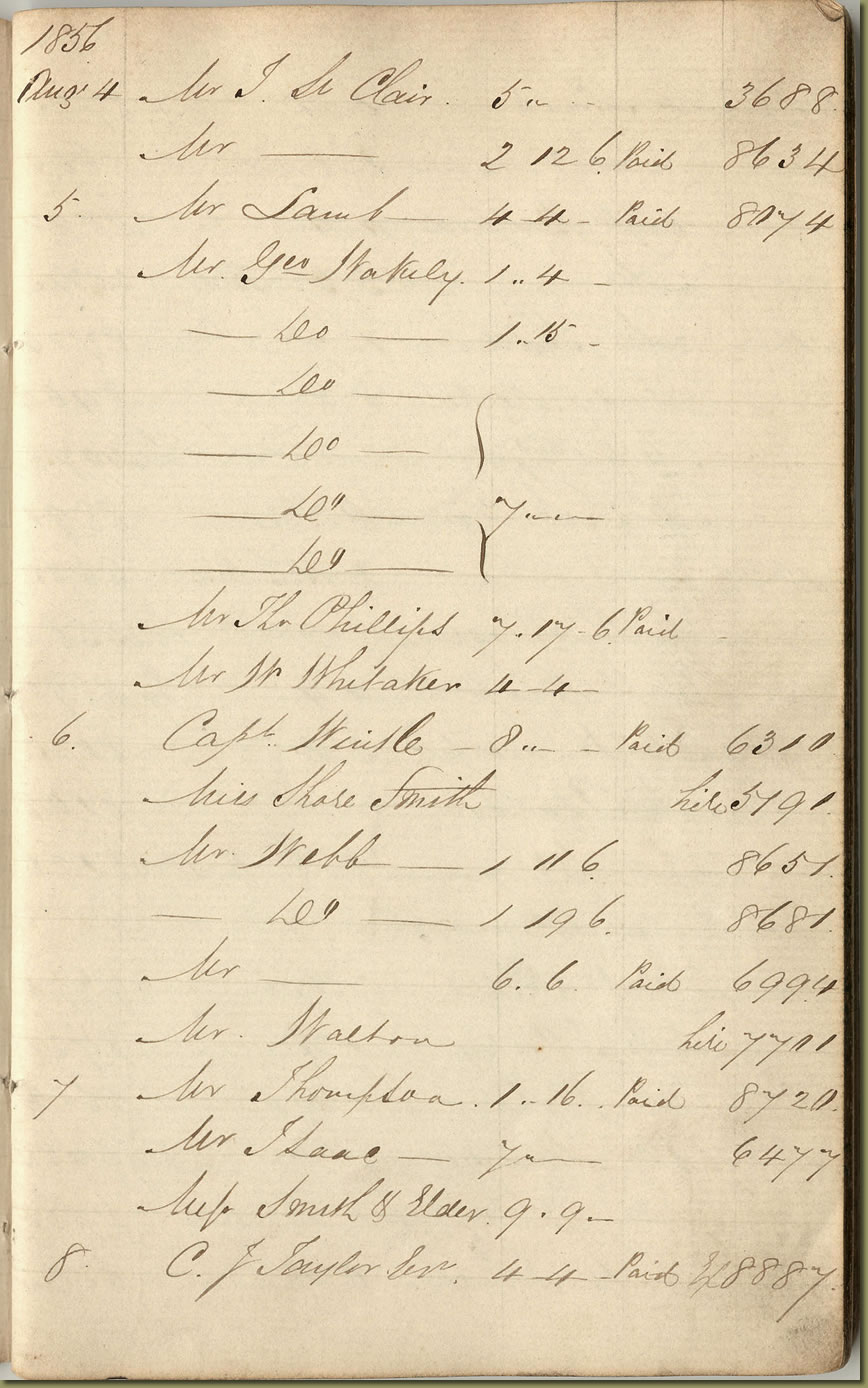 1856
Augt 4 Mr J. St Clair. 5 " - 3688.
Mr —— 2 12 6. Paid 8634
5. Mr Lamb —— 4 - 4 - Paid 8074
Mr. Geo Wakely. 1 .. 4 -
—— Do —— 1 .. 15 -
—— Do ——
—— Do ——
—— Do —— 7 " —
—— Do ——
Mr Tho Phillips 7 . 17 - 6. Paid -
Mr W Whitaker 4 - 4 —
6. Capt. Wintle - 8 " - - Paid 6310
Miss Shore Smith hire 5191.
Mr. Webb —— 1 11 6. 8651.
—— Do —— 1 19 6. 8681.
Mr —— 6. 6. Paid 6994
Mr. Walton hire 7701
7 Mr Thompson . 1 .. 16. . Paid 8720.
Mr Isaac — 7 " — 6477
Messr Smith & Elder. 9 . 9 —
8. C. J Taylor Esr. 4 - 4 - Paid 8887.